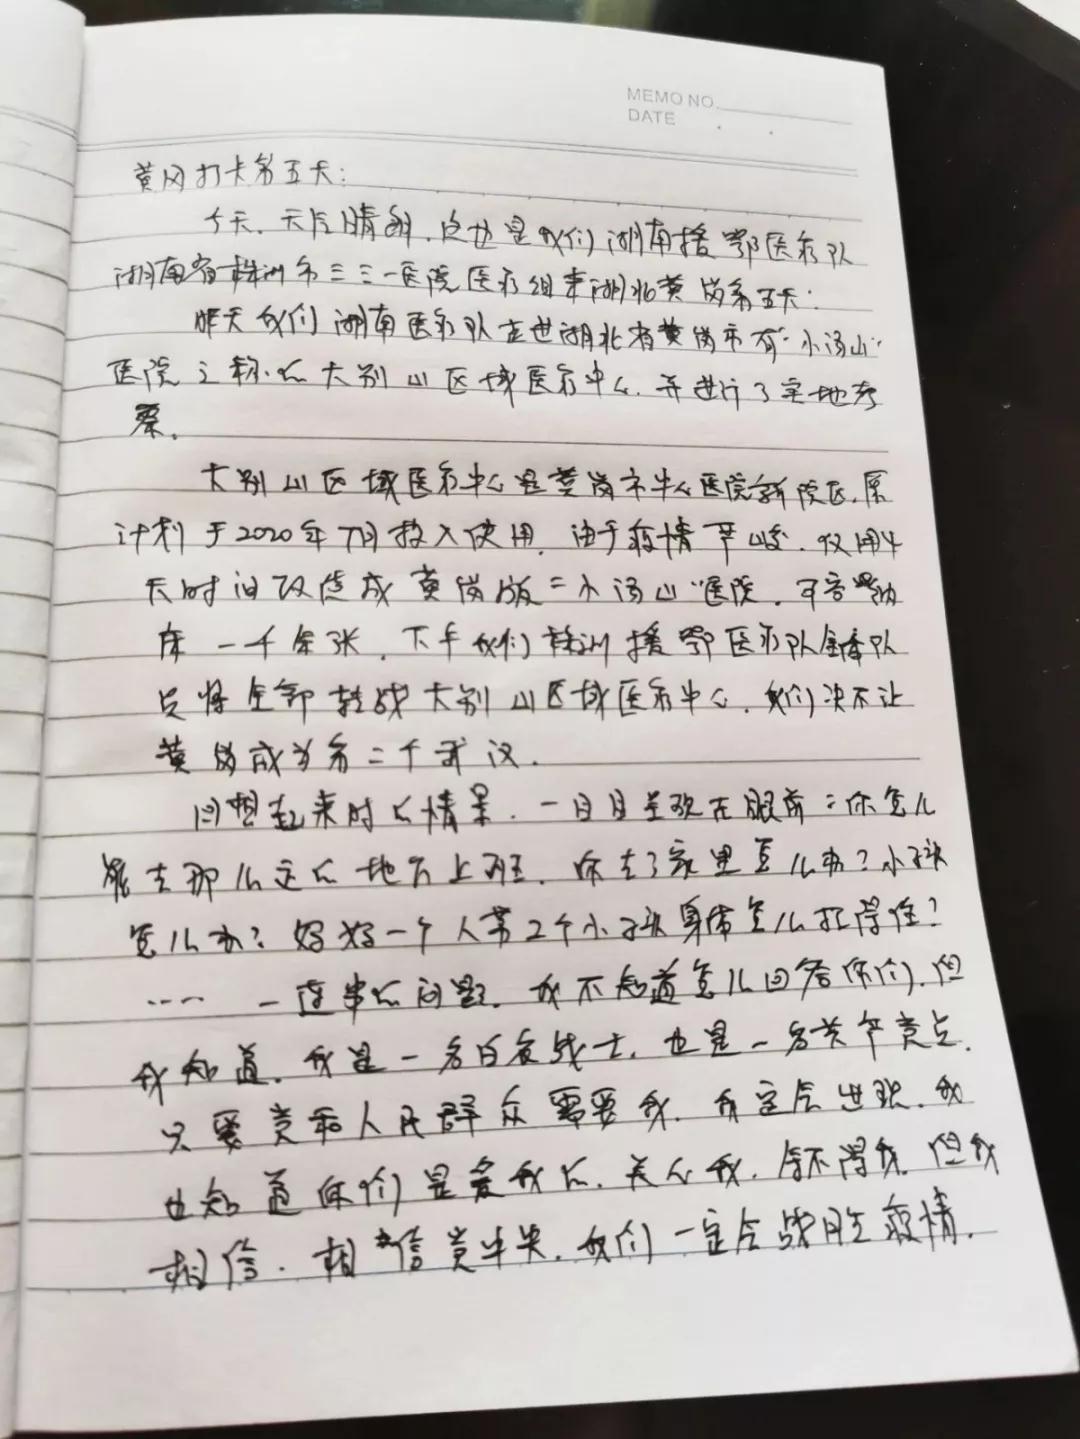 MEMO NO.
DATE
黄冈打卡第五天:
今天,天气晴朗,这也是我们湖南援鄂医疗队
湖南省株洲市三三一医院医疗组来湖北黄岗第五天:
昨天我们湖南医疗队走进湖北省黄岗市有“小汤山”
医院之称的大别山区域医疗中心,并进行了实地考
察。
大别山区域医疗中心是黄岗市中心医院新院区,原
计划于2020年7月投入使用,由于疫情严峻,仅用4
天时间改造成黄岗版“小汤山”医院,可容纳
床一千余张,下午我们株洲援鄂医疗队
员将全部转战大别山区域医疗中心,我们决不让
黄岗成为第二个武汉.
回想起来时的情景,一目目呈现在眼前:你怎么
能去那么远的地方上班,你去了家里怎么办?小孩
怎么办?妈妈一个人带2个小孩身体怎么扛得住?
…… 一连串的问题,我不知道怎么回答你们,但
我知道,我是一名白衣战士,也是一名共产党员,
只要党和人民群众需要我,我定会出现,我
也知道你们是爱我的,关心我,舍不得我,但我
相信,相信党中央,我们一定会战胜疫情.